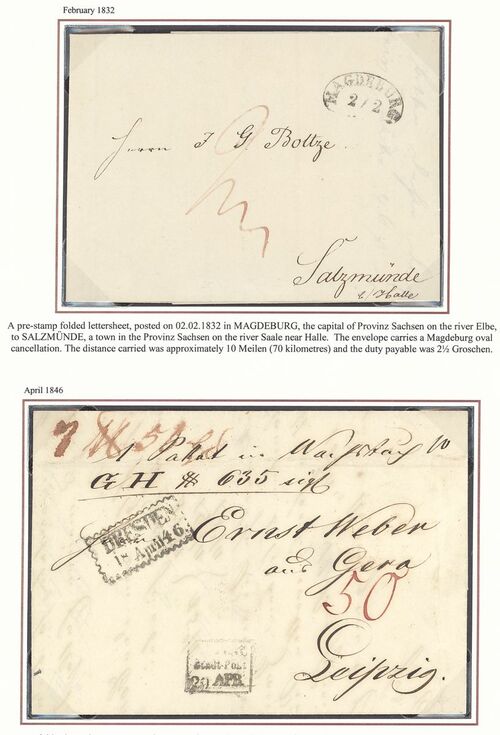 February 1832
MAGDEBURG
2/2
Herrn J G Boltze
Salzmünde
b/Halle
A pre-stamp folded lettersheet, posted on 02.02.1832 in MAGDEBURG, the capital of Provinz Sachsen on the river Elbe,
to SALZMÜNDE, a town in the Provinz Sachsen on the river Saale near Halle. The envelope carries a Magdeburg oval
cancellation. The distance carried was approximately 10 Meilen (70 kilometres) and the duty payable was 2½ Groschen.
April 1846
1 Paket in
G H # 635
DRESDEN
18 April 46
Ernst Weber
aus Gera
50
Stadt-Post
20 APR
Leipzig.